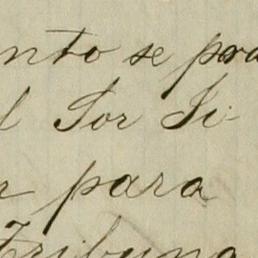 nto se pra
l Sor Ji-
r para
Tribuna